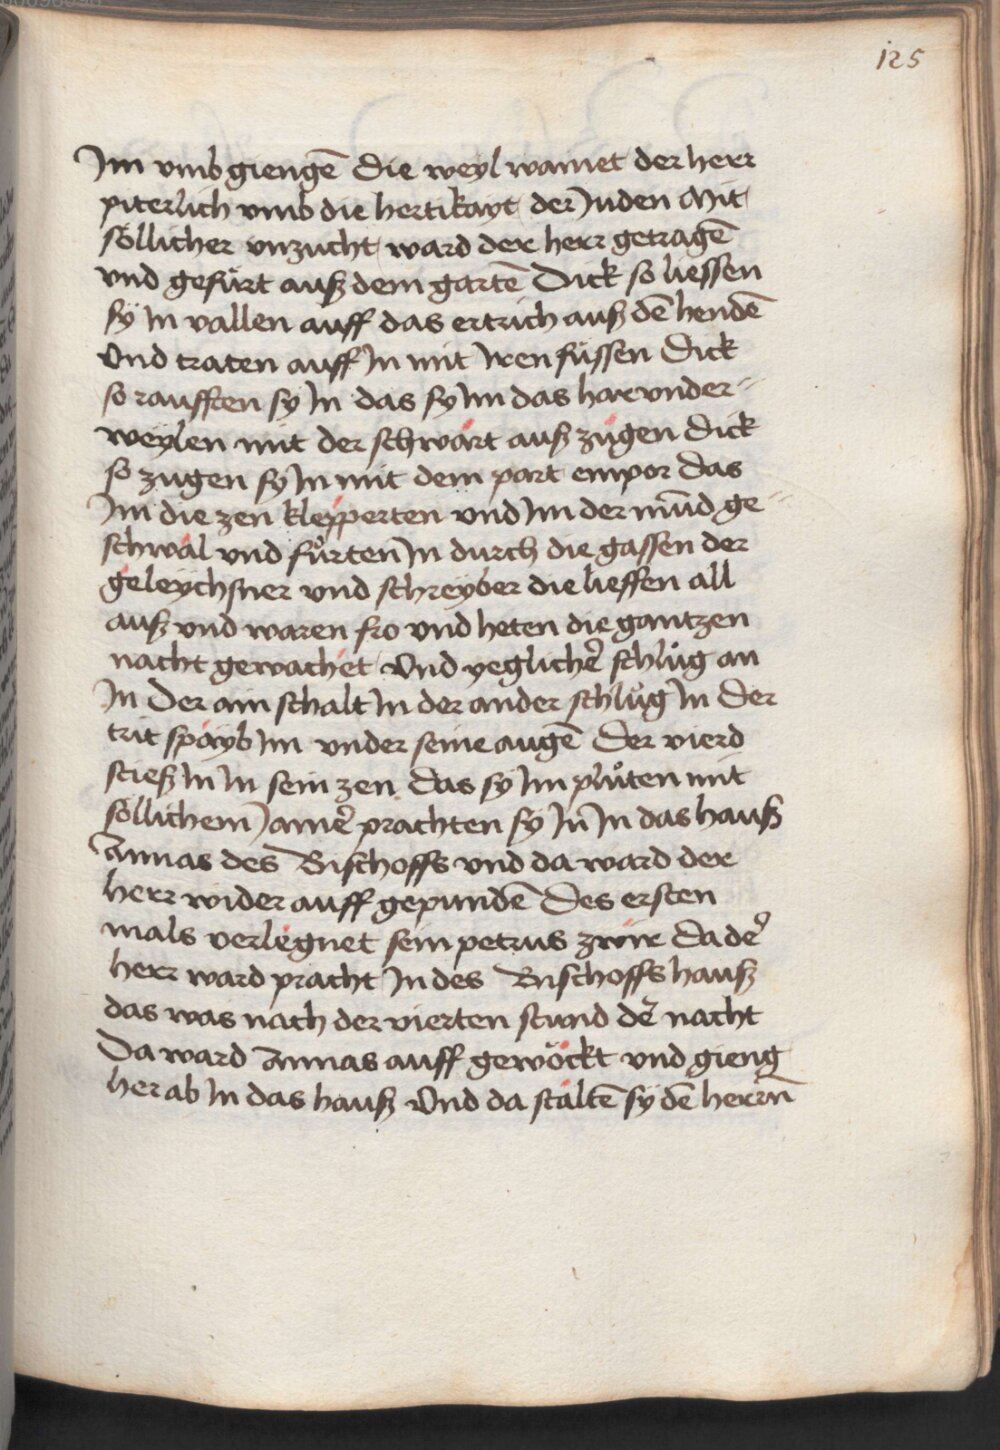 125
Im vmb giengē die weyl wainet der herr
piterlich vmb die hertikayt der Juden Mit
söllicher vnzucht ward der herr getragē
vnd gefürt auß dem gartē Dick so liessen
sÿ In vallen auff das ertrich auß dē hendē
Vnd traten auff In mit Iren füssen Dick
so raufften sy In das sy Im das har vnder-
weylen mit der schwart auß zugen Dick
so zugen sy In mit dem part empor das
Im die zen klepperten vnd Im der mūd ge-
schwal vnd fůrten In durch die gassen der
geleychsner vnd schreyber die lieffen all
auß vnd waren fro vnd heten die gantzen
nacht gewachet Vnd yeglicher̉ schlůg an
In Der ain schalt In der ander schlůg In Der
trit spayb Im vnder seine augē Der vierd
stieß In In sein zen das sy Im plůten mit
söllichem Jamer̉ prachten sy In̄ In das hauß
Annas des Bischoffs vnd da ward der
herr wider auff gepundē Des ersten
mals verlegnet sein petrus zwir Da der̉
herr ward pracht In des Bischoffs hauß
das was nach der vierten stund der̉ nacht
Da ward Annas auff gewöckt vnd gieng
her ab In das hauß Vnd da staltē sy dē herrn̄